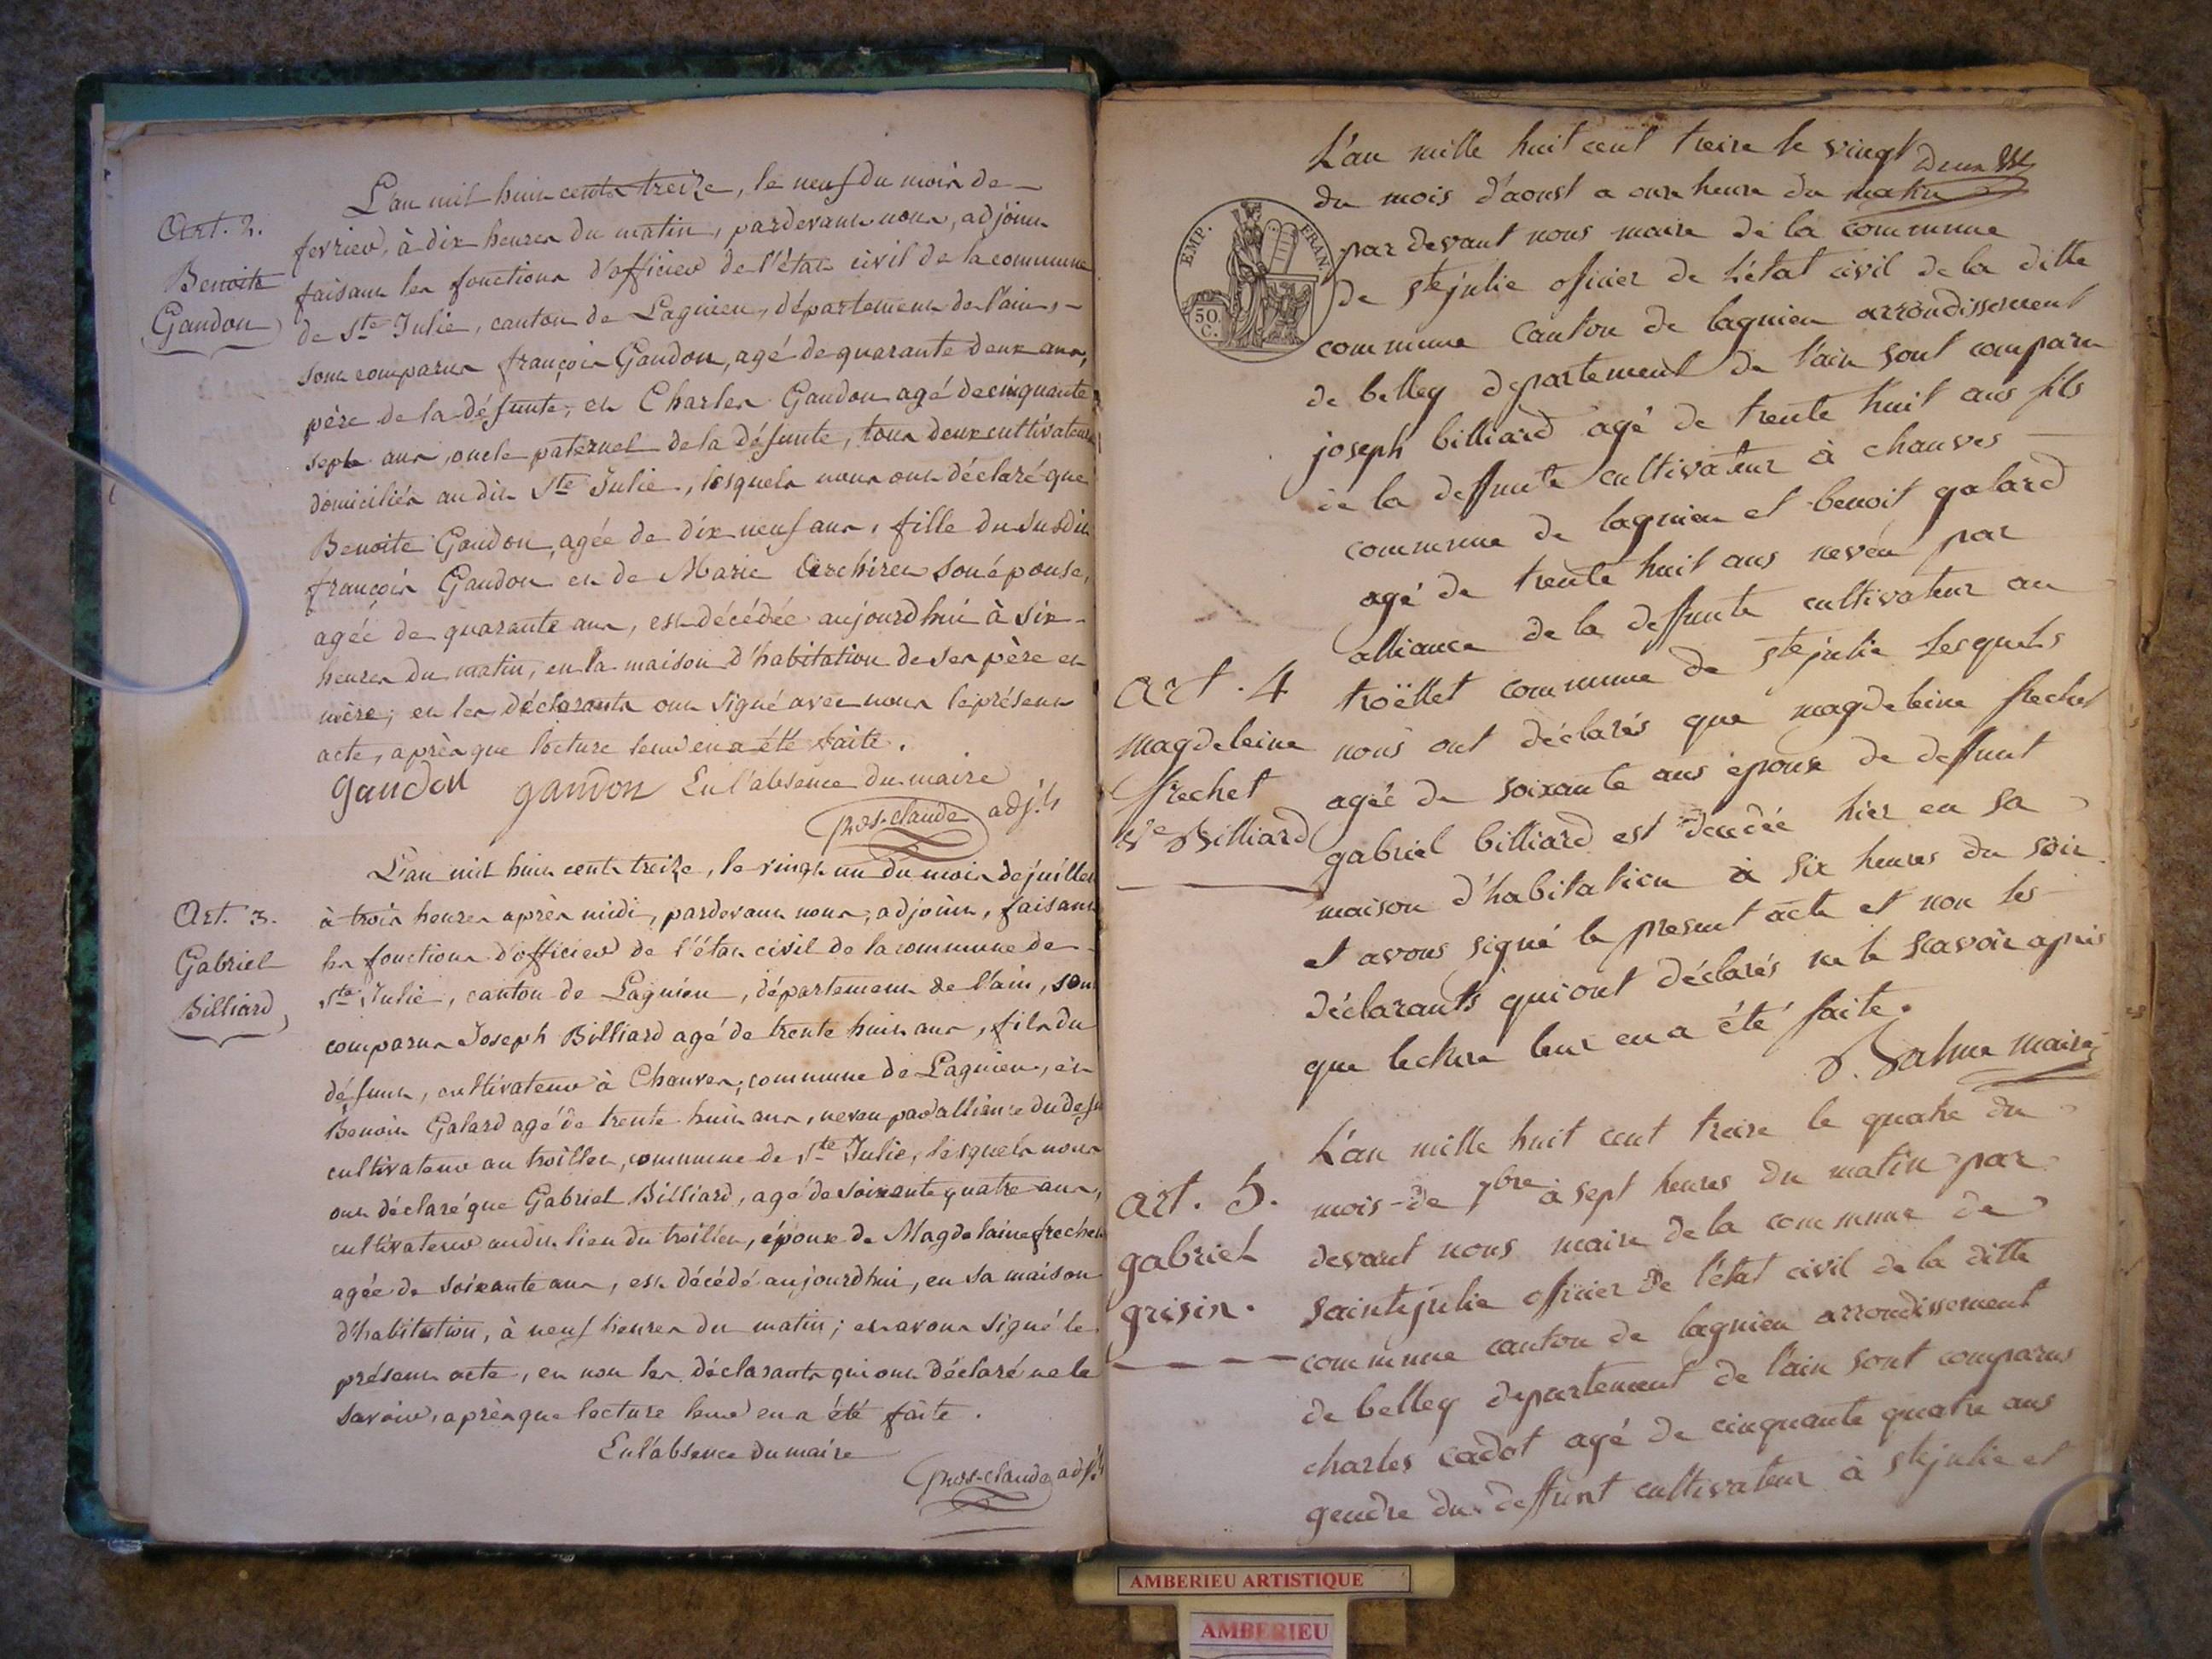 Art. 2.
Benoite
Gandon
L'an mil huit cents treize, le neuf du mois de
fevrier, à dix heures du matin, pardevant nous, adjoint
faisant les fonctions d'officier de l'état civil de la commune
de Ste Julie, canton de Lagnieu, département de l'ain,
sont comparus françois Gandon, agé de quarante deux ans,
père de la défunte, et Charles Gandon agé de cinquante
sept ans, oncle paternel de la défunte, tous deux cultivateurs
domiciliés au dit Ste Julie, lesquels nous ont déclaré que
Benoite Gandon, agée de dix neuf ans, fille du susdit
françois Gandon et de Marie son épouse,
agée de quarante ans, est décédée aujourdhui à six
heures du matin, en la maison d'habitation de ses père et
mère; et les déclarants ont signé avec nous le présent
acte, après que lecture leur en a été faite.
gandon gandon En l'absence du maire
adj.t
Art. 3.
Gabriel
Billiard
L'an mil huit cents treize, le vingt un du mois de juillet
à trois heures après midi, pardevant nous, adjoint, faisant
les fonctions d'officier de l'état civil de la commune de
Ste Julie, canton de Lagnieu, département de l'ain, sont
comparus Joseph Billiard agé de trente huit ans, fils du
défunt, cultivateur à Chanves, commune de Lagnieu, et
Benoit Galard agé de trente huit ans, neveu par alliance du def
cultivateur au troillet, commune de Ste Julie, lesquels nous
ont déclaré que Gabriel Billiard, agé de soixante quatre ans,
cultivateur audit lieu du troillet, époux de Magdelaine frechet
agée de soixante ans, est décédé aujourdhui, en sa maison
d'habitation, à neuf heures du matin; et avons signé le
présent acte, et non les déclarants qui ont déclaré ne le
savoir, après que lecture leur en a été faite.
En l'absence du maire
adj.t
EMP. FRAN.
50 C.
L'an mille huit cent treize le vingt deux
du mois d'aoust a onze heure du matin
par devant nous maire de la commune
de ste julie oficier de l'état civil de la ditte
commune canton de lagnieu arrondissement
de belley departement de l'ain sont comparu
joseph billiard agé de trente huit ans fils
de la deffunte cultivateur à chanves
commune de lagnieu et benoit galard
agé de trente huit ans neveu par
alliance de la deffunte cultivateur au
troëllet commune de ste julie Lesquels
nous ont déclarés que magdeleine frechet
agée de soixante ans epouse de deffunt
gabriel billiard est decedée hier en sa
maison d'habitation à six heures du soir
et avons signé le present acte et non les
déclarants qui ont déclarés ne le scavoir après
que lecture leur en a été faite.
maire
art. 4
magdeleine
frechet
Ve Billiard
L'an mille huit cent treize le quatre du
mois de 7bre à sept heures du matin par
devant nous maire de la commune de
sainte julie oficier de l'état civil de la ditte
commune canton de lagnieu arrondissement
de belley departement de l'ain sont comparus
charles cadot agé de cinquante quatre ans
gendre du deffunt cultivateur à ste julie et
art. 5.
gabriel
grisin.
AMBERIEU ARTISTIQUE
AMBERIEU